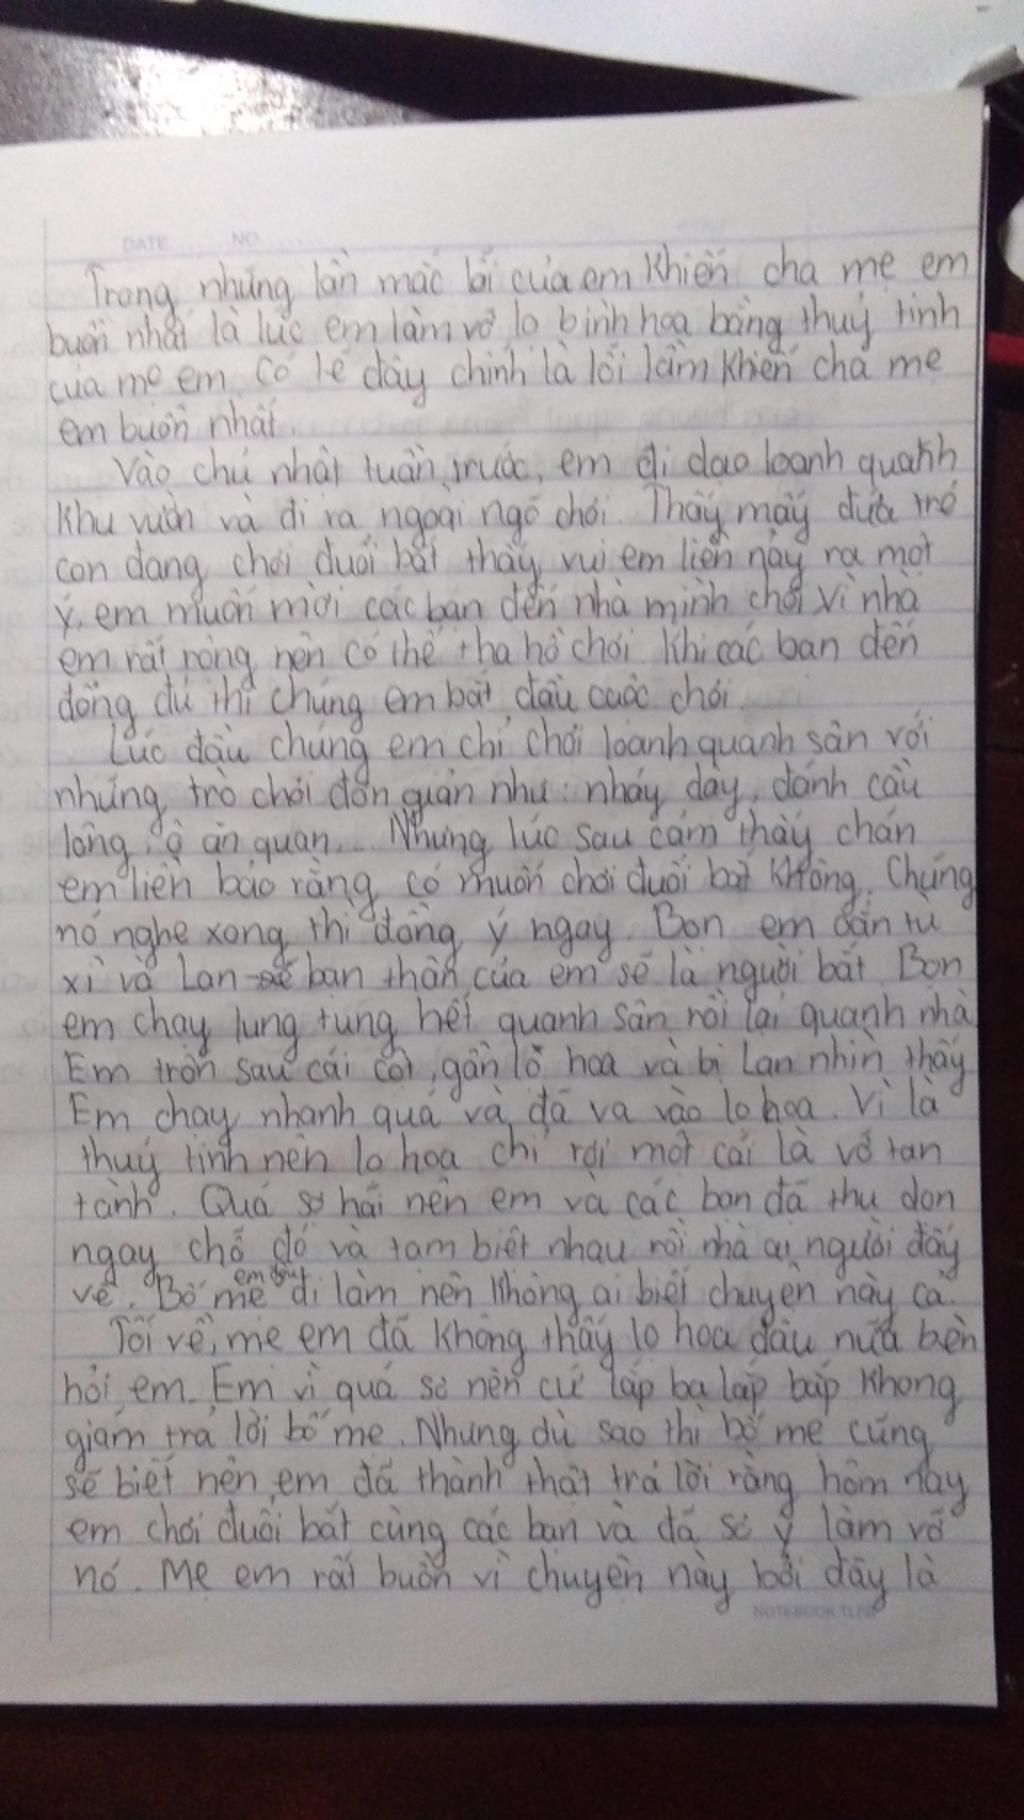 DATE NO
Trong những lần mắc lỗi của em khiến cha mẹ em
buồn nhất là lúc em làm vỡ lọ bình hoa bằng thuỷ tinh
của mẹ em. Có lẽ đây chính là lỗi lầm khiến cha mẹ
em buồn nhất.
Vào chủ nhật tuần trước, em đi dạo loanh quanh
khu vườn và đi ra ngoài ngõ chơi. Thấy mấy đứa trẻ
con đang chơi đuổi bắt thấy vui em liền nảy ra một
ý, em muốn mời các bạn đến nhà mình chơi vì nhà
em rất rộng nên có thể tha hồ chơi. Khi các bạn đến
đông đủ thì chúng em bắt đầu cuộc chơi.
Lúc đầu chúng em chỉ chơi loanh quanh sân với
những trò chơi đơn giản như: nhảy dây, đánh cầu
lông, ô ăn quan,... Nhưng lúc sau cảm thấy chán
em liền bảo rằng có muốn chơi đuổi bắt không. Chúng
nó nghe xong thì đồng ý ngay. Bọn em oẳn tù
xì và Lan bạn thân của em sẽ là người bắt. Bọn
em chạy lung tung hết quanh sân rồi lại quanh nhà
Em trốn sau cái cột, gần lọ hoa và bị Lan nhìn thấy
Em chạy nhanh quá và đã va vào lọ hoa. Vì là
thuỷ tinh nên lọ hoa chỉ rơi một cái là vỡ tan
tành. Quá sợ hãi nên em và các bạn đã thu dọn
ngay chỗ đó và tạm biệt nhau rồi nhà ai người đấy
về. Bố mẹ em đi làm nên không ai biết chuyện này cả.
Tối về, mẹ em đã không thấy lọ hoa đâu nữa bèn
hỏi em. Em vì quá sợ nên cứ lắp ba lắp bắp không
giám trả lời bố mẹ. Nhưng dù sao thì bố mẹ cũng
sẽ biết nên em đã thành thật trả lời rằng hôm nay
em chơi đuổi bắt cùng các bạn và đã sơ ý làm vỡ
nó. Mẹ em rất buồn vì chuyện này bởi đây là